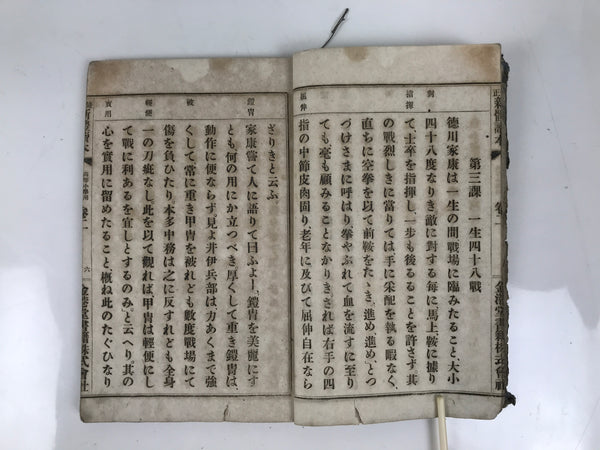 第三課 一生四十八戰
德川家康は一生の間戰場に臨みたること、大小
四十八度なりき敵に對する每に、馬上鞍に據り
て、士卒を指揮し、一步も後るることを許さず、其
の戰烈しきに當りては、手に采配を執る暇なく、
直ちに空拳を以て前鞍をたゝき、進め、進め、とつ
づけさまに呼はり、拳やぶれて血を流すに至り
ても毫も顧みることなかりきされば右手の四
指の中節皮肉固り、老年に及びて屈伸自在なら
對
指揮
屈伸
卷一
ざりきと云ふ
家康嘗て人に語りて曰ふよー、鎧胄を美麗にす
とも、何の用にか立つべき厚くして重き鎧胄は
動作に便ならず、見よ井伊兵部は力あくまで強
くして常に重き甲胄を被れども數度戰場にて
傷を負ひたり、本多中務は之に反すれども全身
一の刀疵なし、此を以て觀れば甲胄は輕便にし
て戰に利あるを宜しとするのみ、と云へり。其の
心を實用に留めたること概ね此のたぐひなり
鎧胄
被
輕便
實用
卷一
六
金港堂書籍株式會社